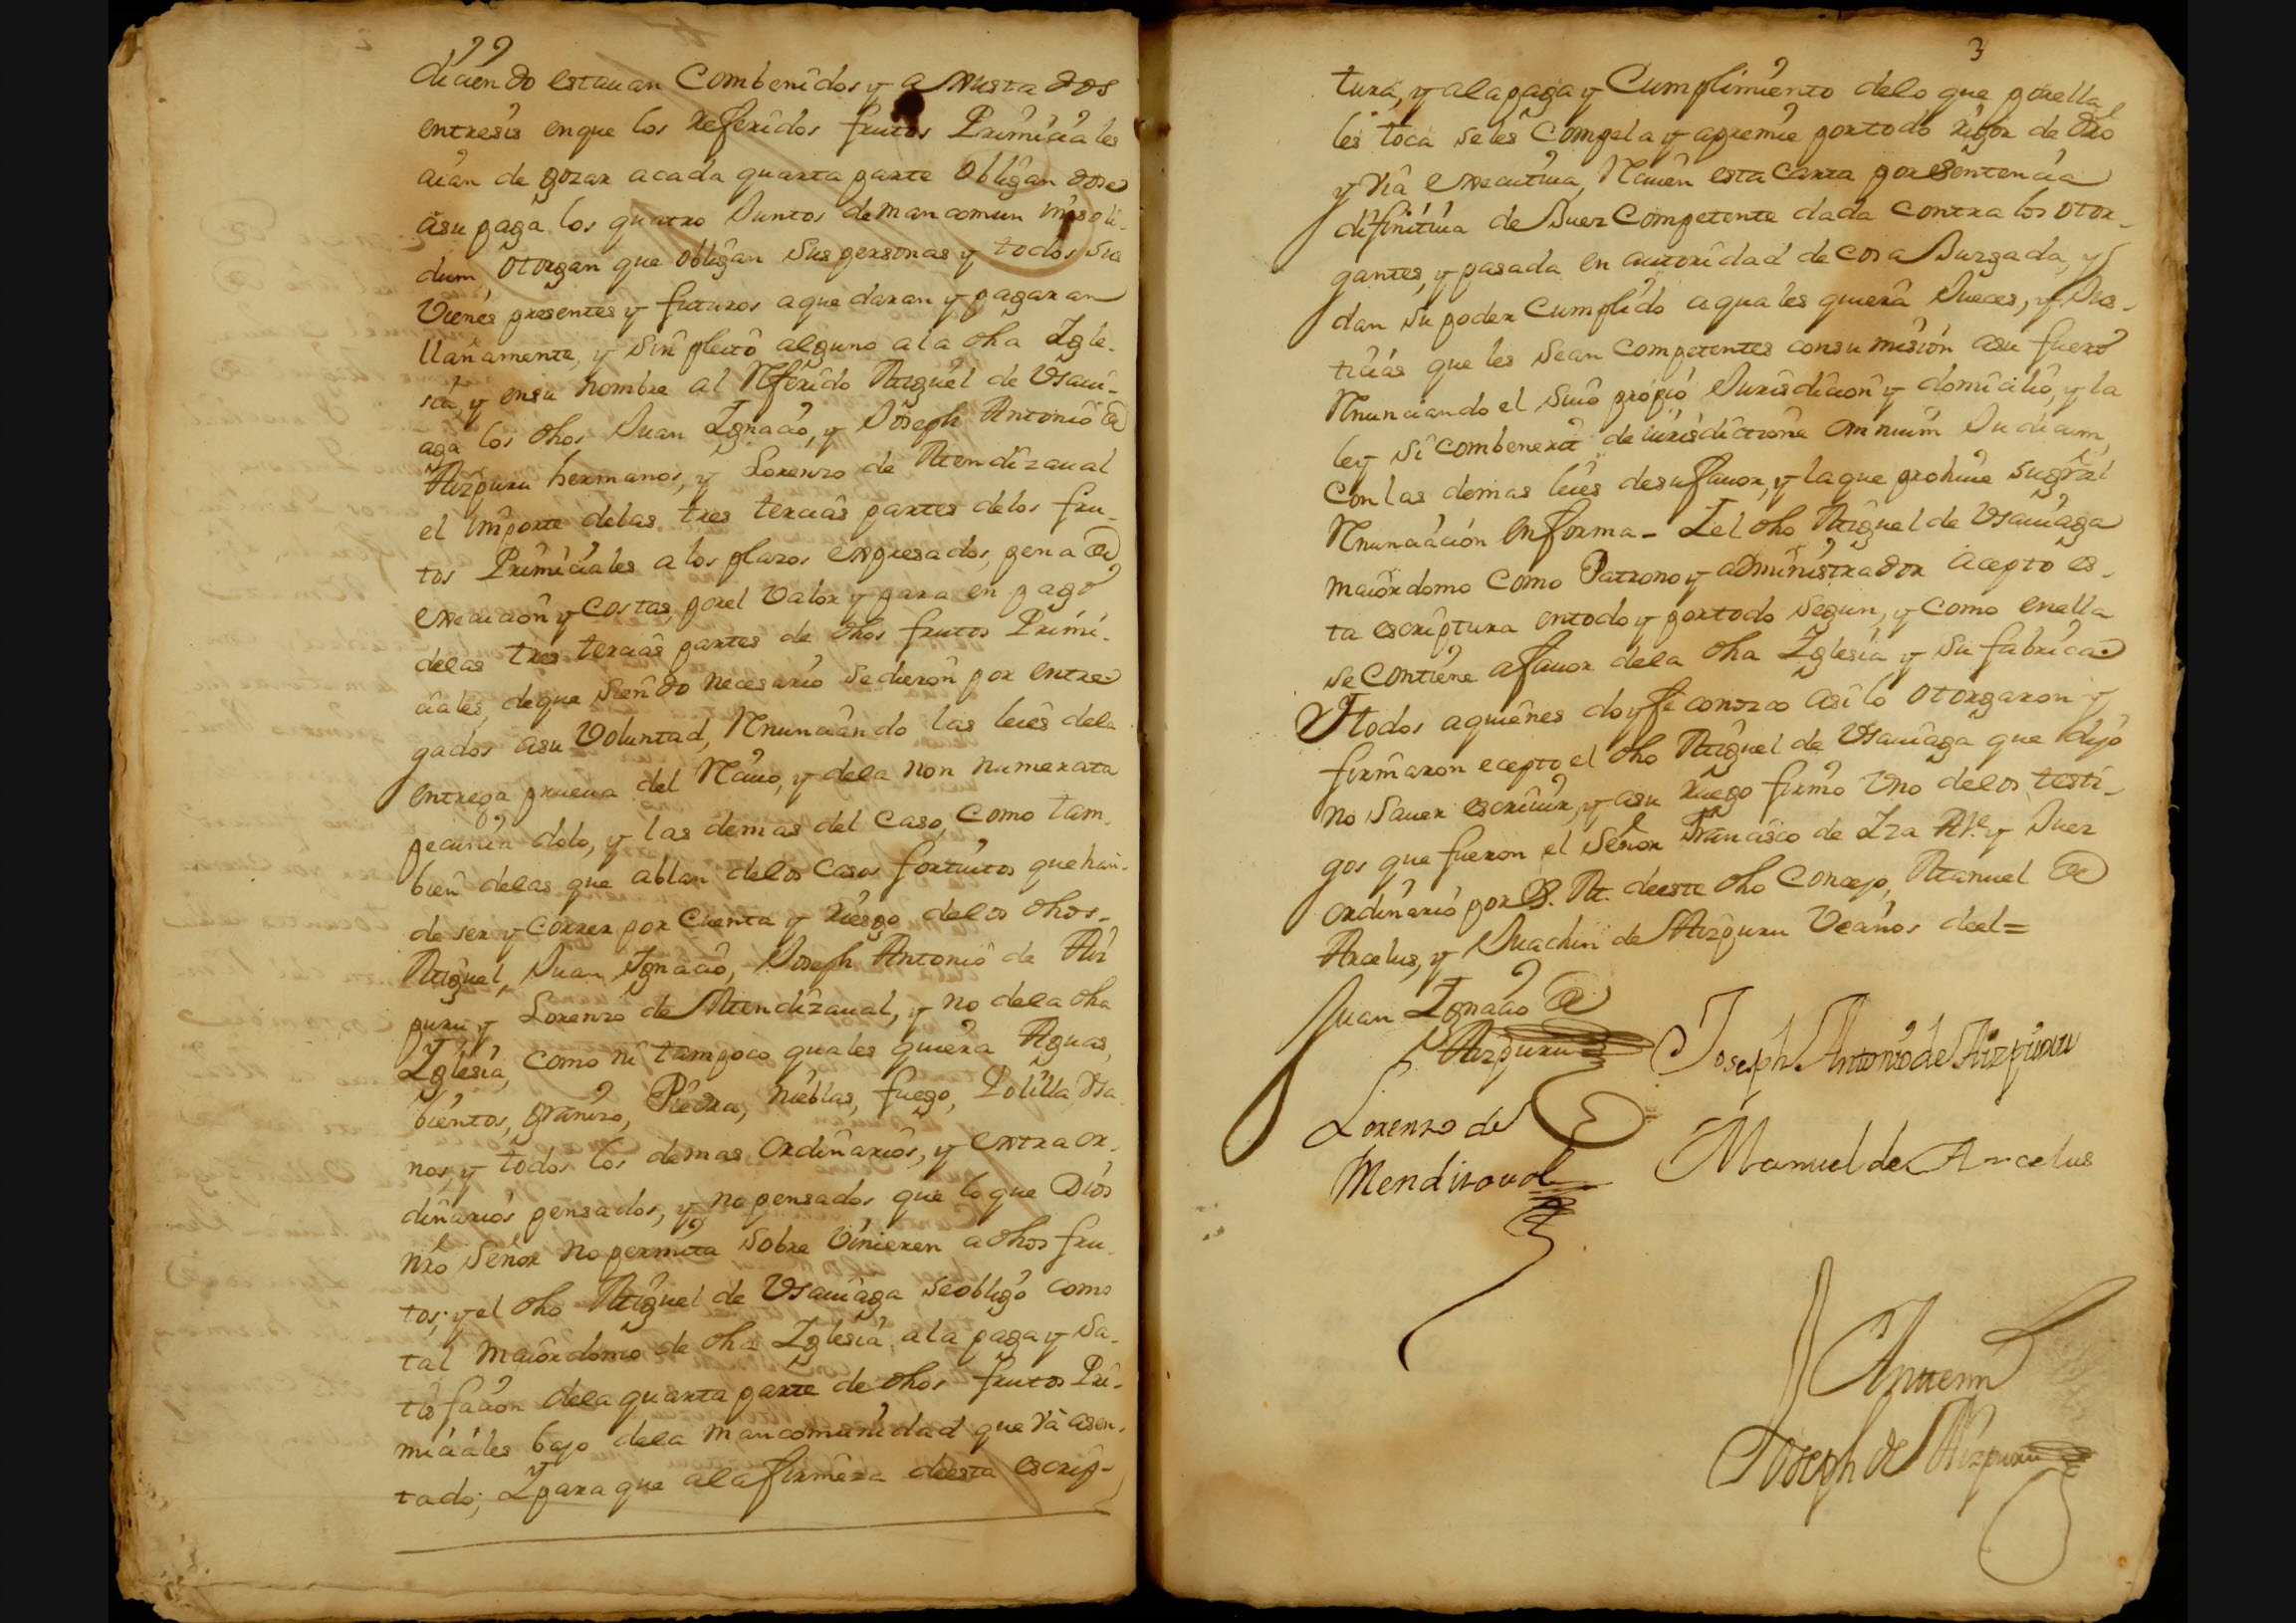 diciendo estauan Combenidos y a Justados
entresis enque los Referidos frutos Primiciales
aian de gozar acada quarta parte obligandose
asu paga los quatro Juntos demancomun insoli-
dum, otorgan que obligan sus personas y todos sus
Vienes presentes y futuros aque daran y pagaran
llanamente, y sin pleito alguno ala dha Igle-
sia, y ensu nombre al Referido Miguel de Vsaui-
aga los dhos Juan Ignacio, y Joseph Antonio de
Aizpuru hermanos, y Lorenzo de Mendizaual
el importe delas tres tercias partes delos fru-
tos Primiciales a los plazos expresados, pena de
execucion y costas, porel Valor y para en pago
delas tres tercias partes de dhos frutos Primi-
ciales, deque siendo necesario sedieron por entre
gados asu Voluntad, Renunciando las leies dela
entrega prueua del Reciuo, y dela non numerata
pecunia dolo, y las demas del caso, Como tam-
bien delas que ablan delos casos fortuitos que han
de ser y correr por Cuenta y Riesgo delos dhos
Miguel, Juan Ignacio, Joseph Antonio de Aiz
puru y Lorenzo de Mendizaual, y no dela dha
Iglesia, como ni tampoco quales quiera Aguas,
bientos, granizo, Piedra, nieblas, fuego, Polilla,
nos, y todos los demas ordinarios, y extraor-
dinarios pensados, y no pensados, que lo que Dios
nro Señor no permita Sobre Vinieren a dhos fru
tos; y el dho Miguel de Vsauiaga seobligo como
tal maiordomo de dha Iglesia, ala paga y Sa-
tisfacion dela quarta parte de dhos frutos Pri-
miciales bajo dela mancomunidad que va asen-
tado; I para que ala firmeza deesta escrip-
3
tura, y alapaga y Cumplimiento delo que porella
les toca seles Compela y apremie portodo rigor de dro
y via executiua, Reciuen esta Carta por sentencia
difinitiua de Juez Competente dada contra los otor-
gantes, y pasada en autoridad de cosa Juzgada, y
dan su poder Cumplido aquales quiera Jueces, y Jus-
ticias que les sean competentes consumision asu fuero
Renunciando el suio propio Jurisdicion y domicilio, y la
ley si combenerit de iurisdictione omnium Judicum,
Con las demas leies desufauor, y laque prohiue sugral
Renunciacion enforma- I el dho Miguel de Vsauiaga
maiordomo como Patrono y administrador acepto es-
ta escriptura entodo y portodo segun, y como enella
se contiene afauor dela dha Iglesia y su fabrica
Y todos aquienes doyfe conozco asilo otorgaron y
firmaron ecepto el dho Miguel de Vsauiaga que dijo
no sauer escriuir, y asu ruego firmo Vno delos testi-
gos que fueron el Señor Francisco de Iza Alde y Juez
ordinario por S. M. deeste dho Concejo, Manuel de
Arcelus, y Juachin de Aizpuru Vecinos deel=
Juan Ignacio de
Aizpuru
Joseph Antonio de Aizpuru
Lorenzo de
Mendizaual
Manuel de Arcelus
Antemi
Joseph de Aizpuru